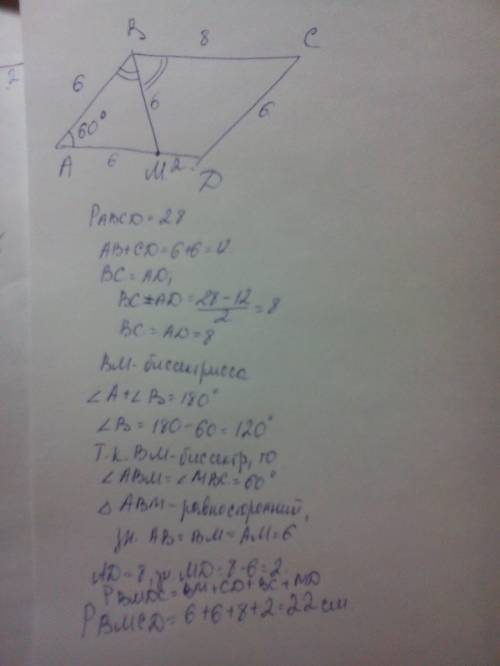 B 8 C
6 6 6
60°
A 6 M 2 D
PABCD = 28
AB+CD=6+6=12
BC = AD,
BC=AD = 28-12/2 = 8
BC = AD = 8
BM-биссектриса
∠A+∠B=180°
∠B = 180-60=120°
Т.к. BM-биссектр, то
∠ABM=∠MBC=60°
△ ABM-равносторонний,
зн. AB=BM=AM=6
AD=8, зн. MD=8-6=2.
PBMDC=BM+CD+BC+MD
PBMCD= 6+6+8+2=22см